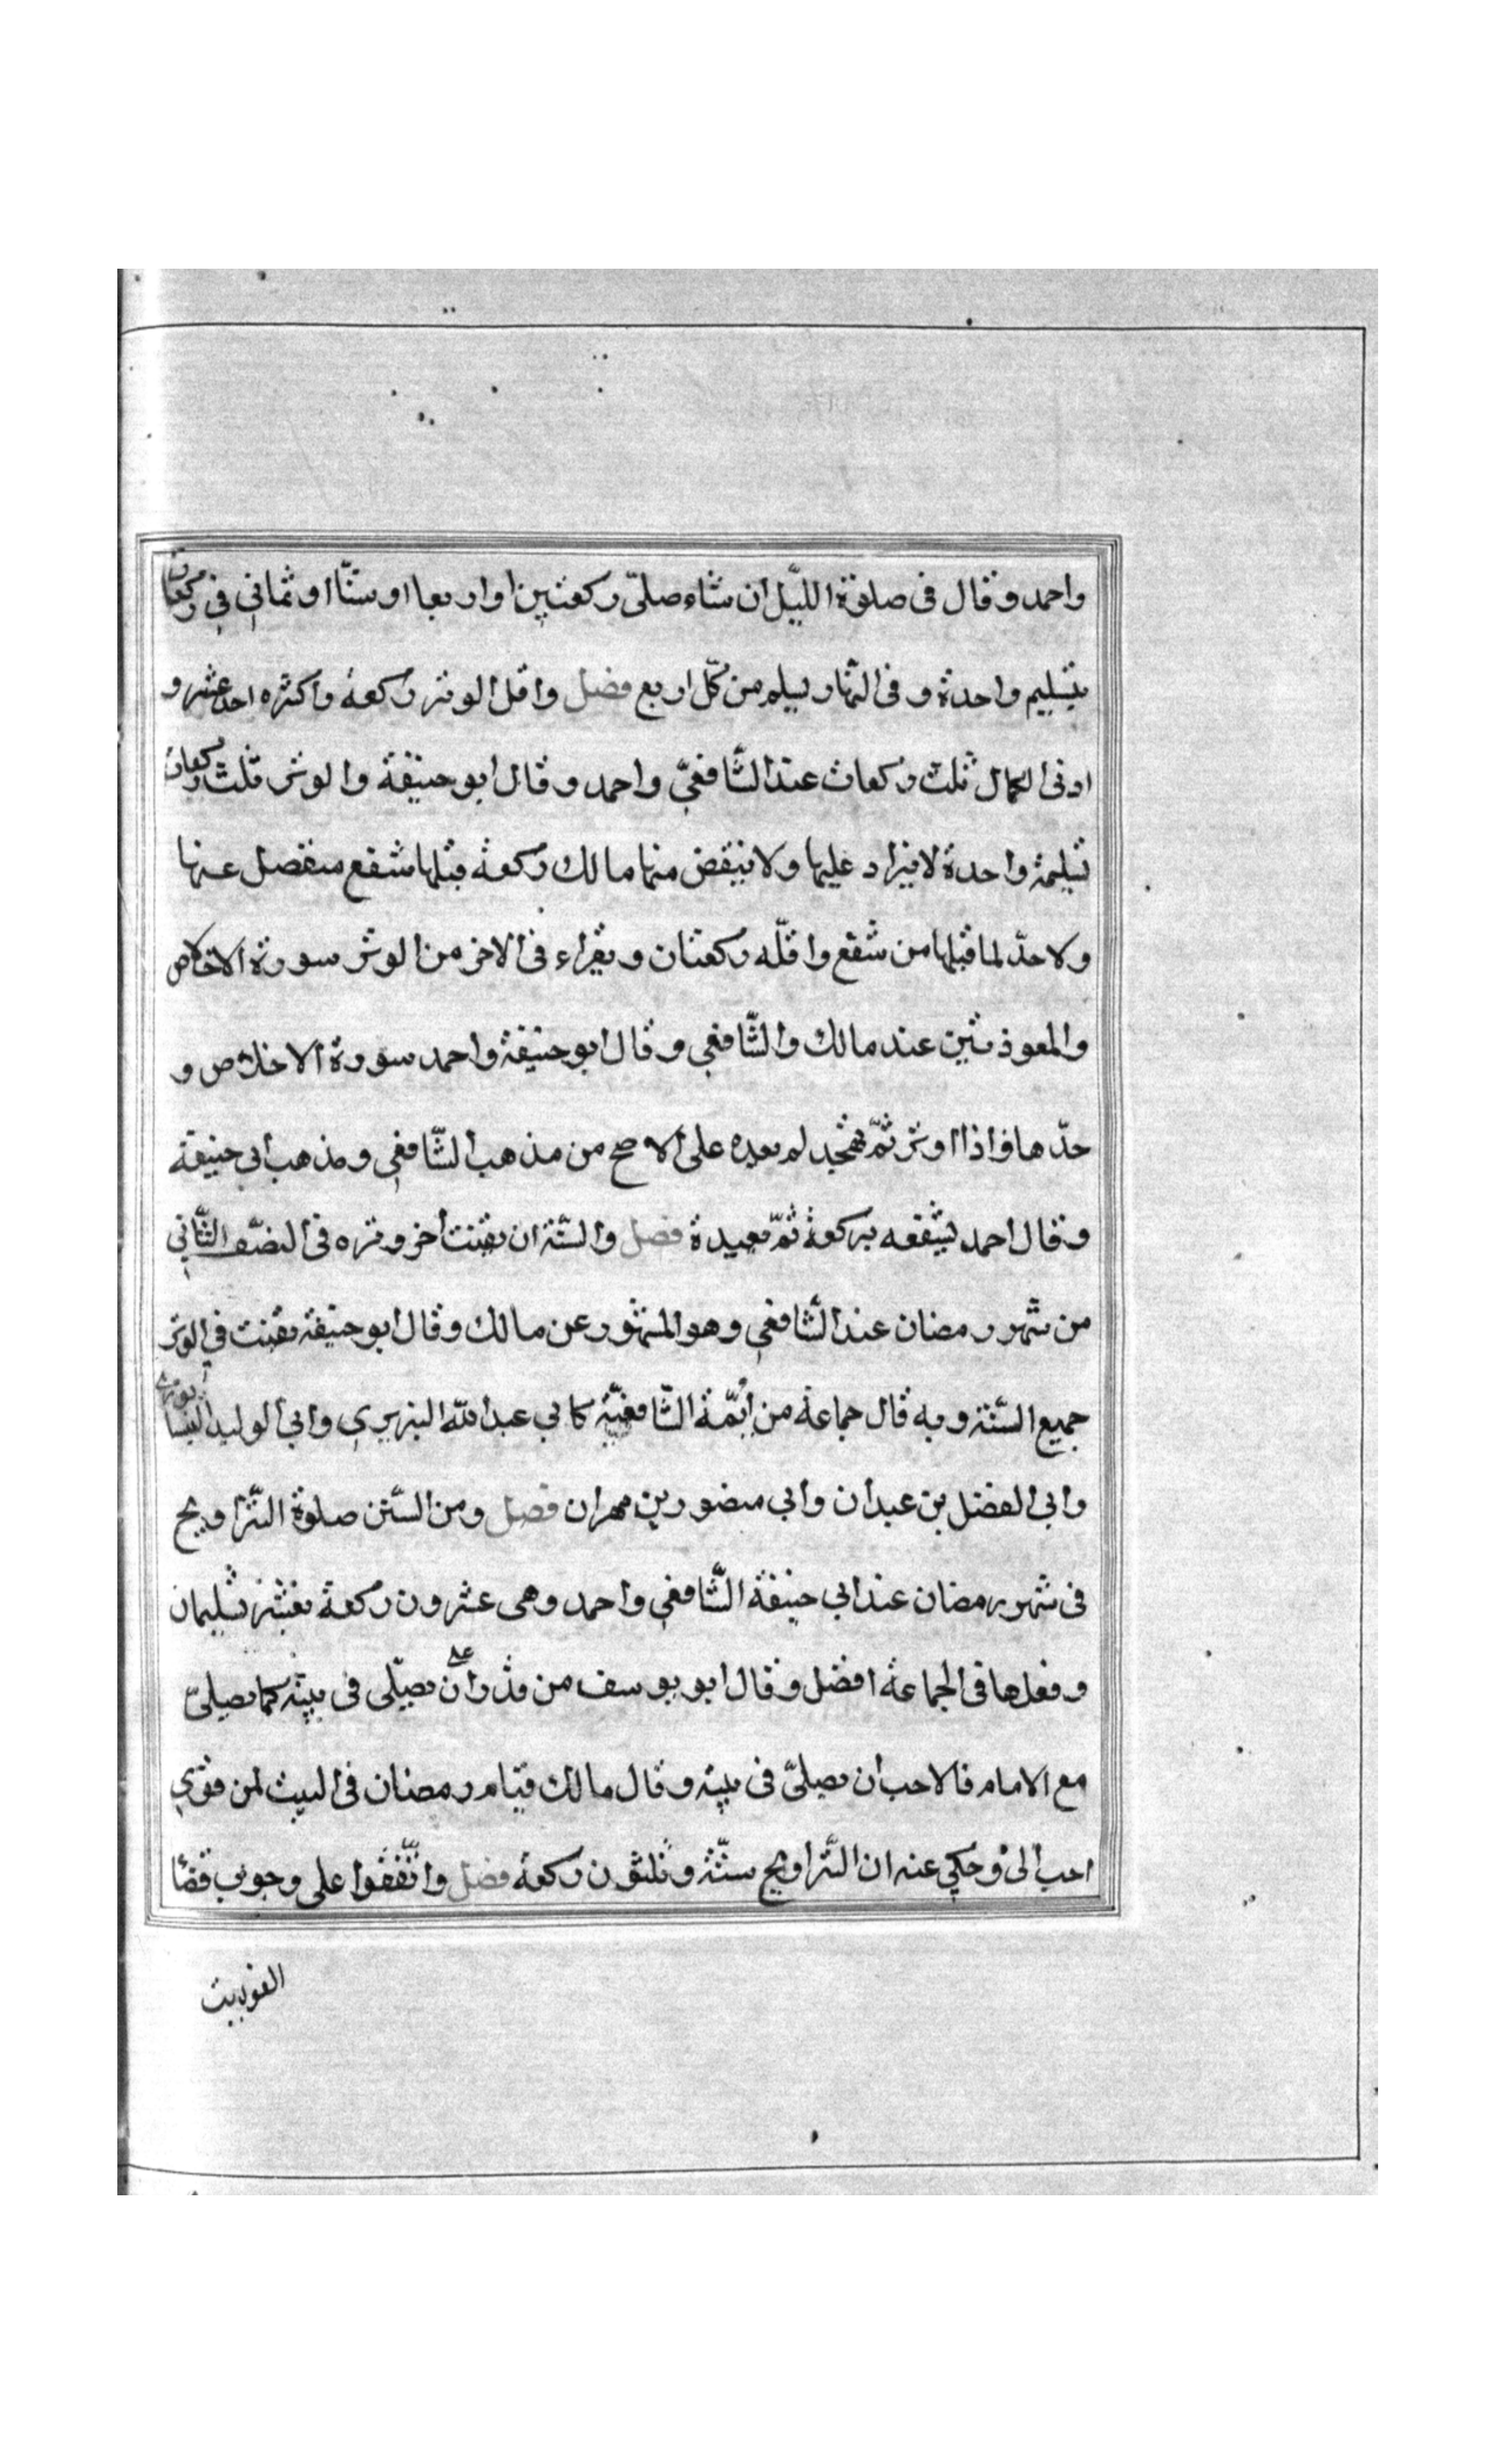 واحمد وقال فى صلوة الليّل ان شاء صلىّ ركعتين او اربعا او ستّا او ثمانى فى ركعات
بتسليم واحدة و فى النهار يسلم من كلّ اربع فصل واقل الوتر ركعة واكثره احد عشر و
ادنى الكمال ثلث ركعات عند الشّافعىّ واحمد وقال ابو حنيفة والوتر ثلث ركعات
بتسليمة واحدة لا يزاد عليها ولا ينقص منها مالك ركعة قبلها شفع منفصل عنها
ولا حدّ لما قبلها من شفع واقلّه ركعتان ويقراء فى الاخر من الوتر سورة الاخلاص
والمعوذتين عند مالك والشّافعي وقال ابو حنيفة واحمد سورة الاخلاص و
حدّها فاذا اوتر ثمّ تهجد لم يعده على الاصح من مذهب الشّافعي ومذهب ابي حنيفة
وقال احمد يشفعه بركعة ثمّ يعيدة فصل والسّنة ان يقنت اخر وتره فى النصف الثّاني
من شهر رمضان عند الشّافعي وهو المشهور عن مالك وقال ابو حنيفة يقنت في الوتر
جميع السّنة وبه قال جماعة من ائمّة الشّافعيّة كابي عبد الله الزبيري وابي الوليد النيسابوري
وابي الفضل بن عبدان وابي منصور بن مهران فصل ومن السّنن صلوة التّراويح
فى شهر رمضان عند ابي حنيفة الشّافعي واحمد وهى عشرون ركعة بعشر تسليمات
وفعلها فى الجماعة افضل وقال ابو يوسف من قدر على ان يصلّى فى بيته كما يصلىّ
مع الامام فالاحب ان يصلىّ فى بيته وقال مالك قيام رمضان فى البيت لمن قوي
احب الىّ وحكي عنه ان التّراويح ستّة وثلثون ركعة فصل واتّفقوا على وجوب قضا
الفوايت